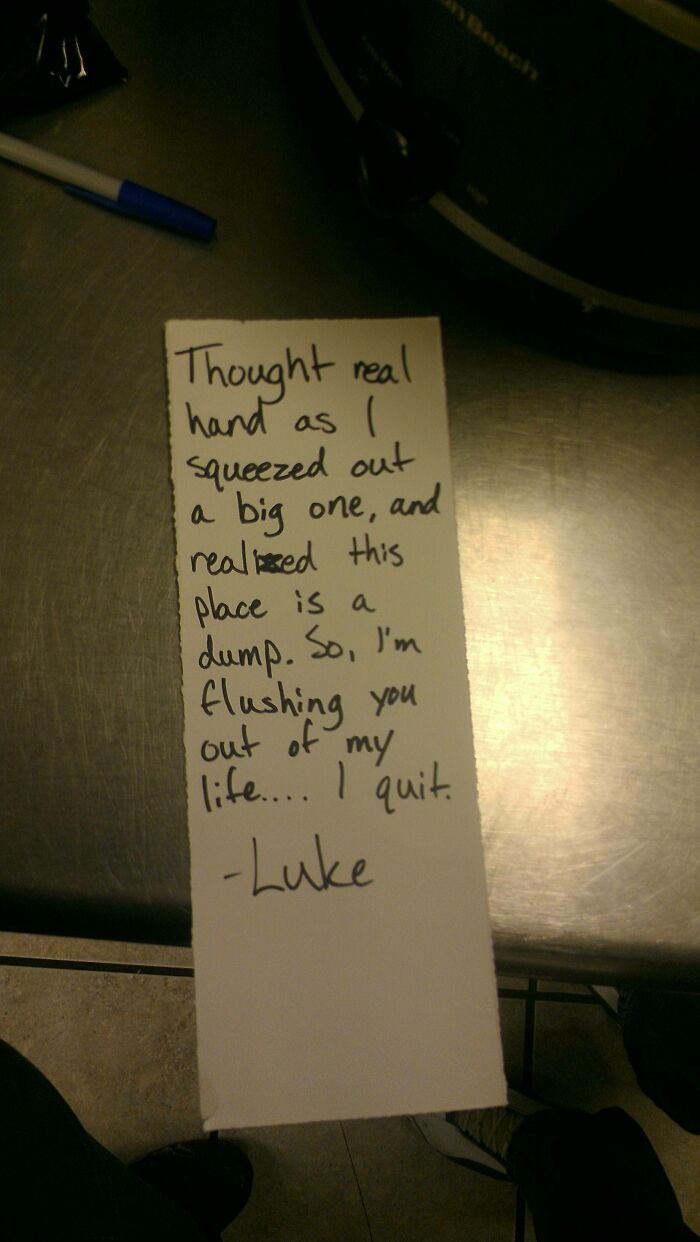 onBeach
Thought real
hand as I
squeezed out
a big one, and
realized this
place is a
dump. So, I'm
flushing you
out of my
life.... I quit.
-Luke